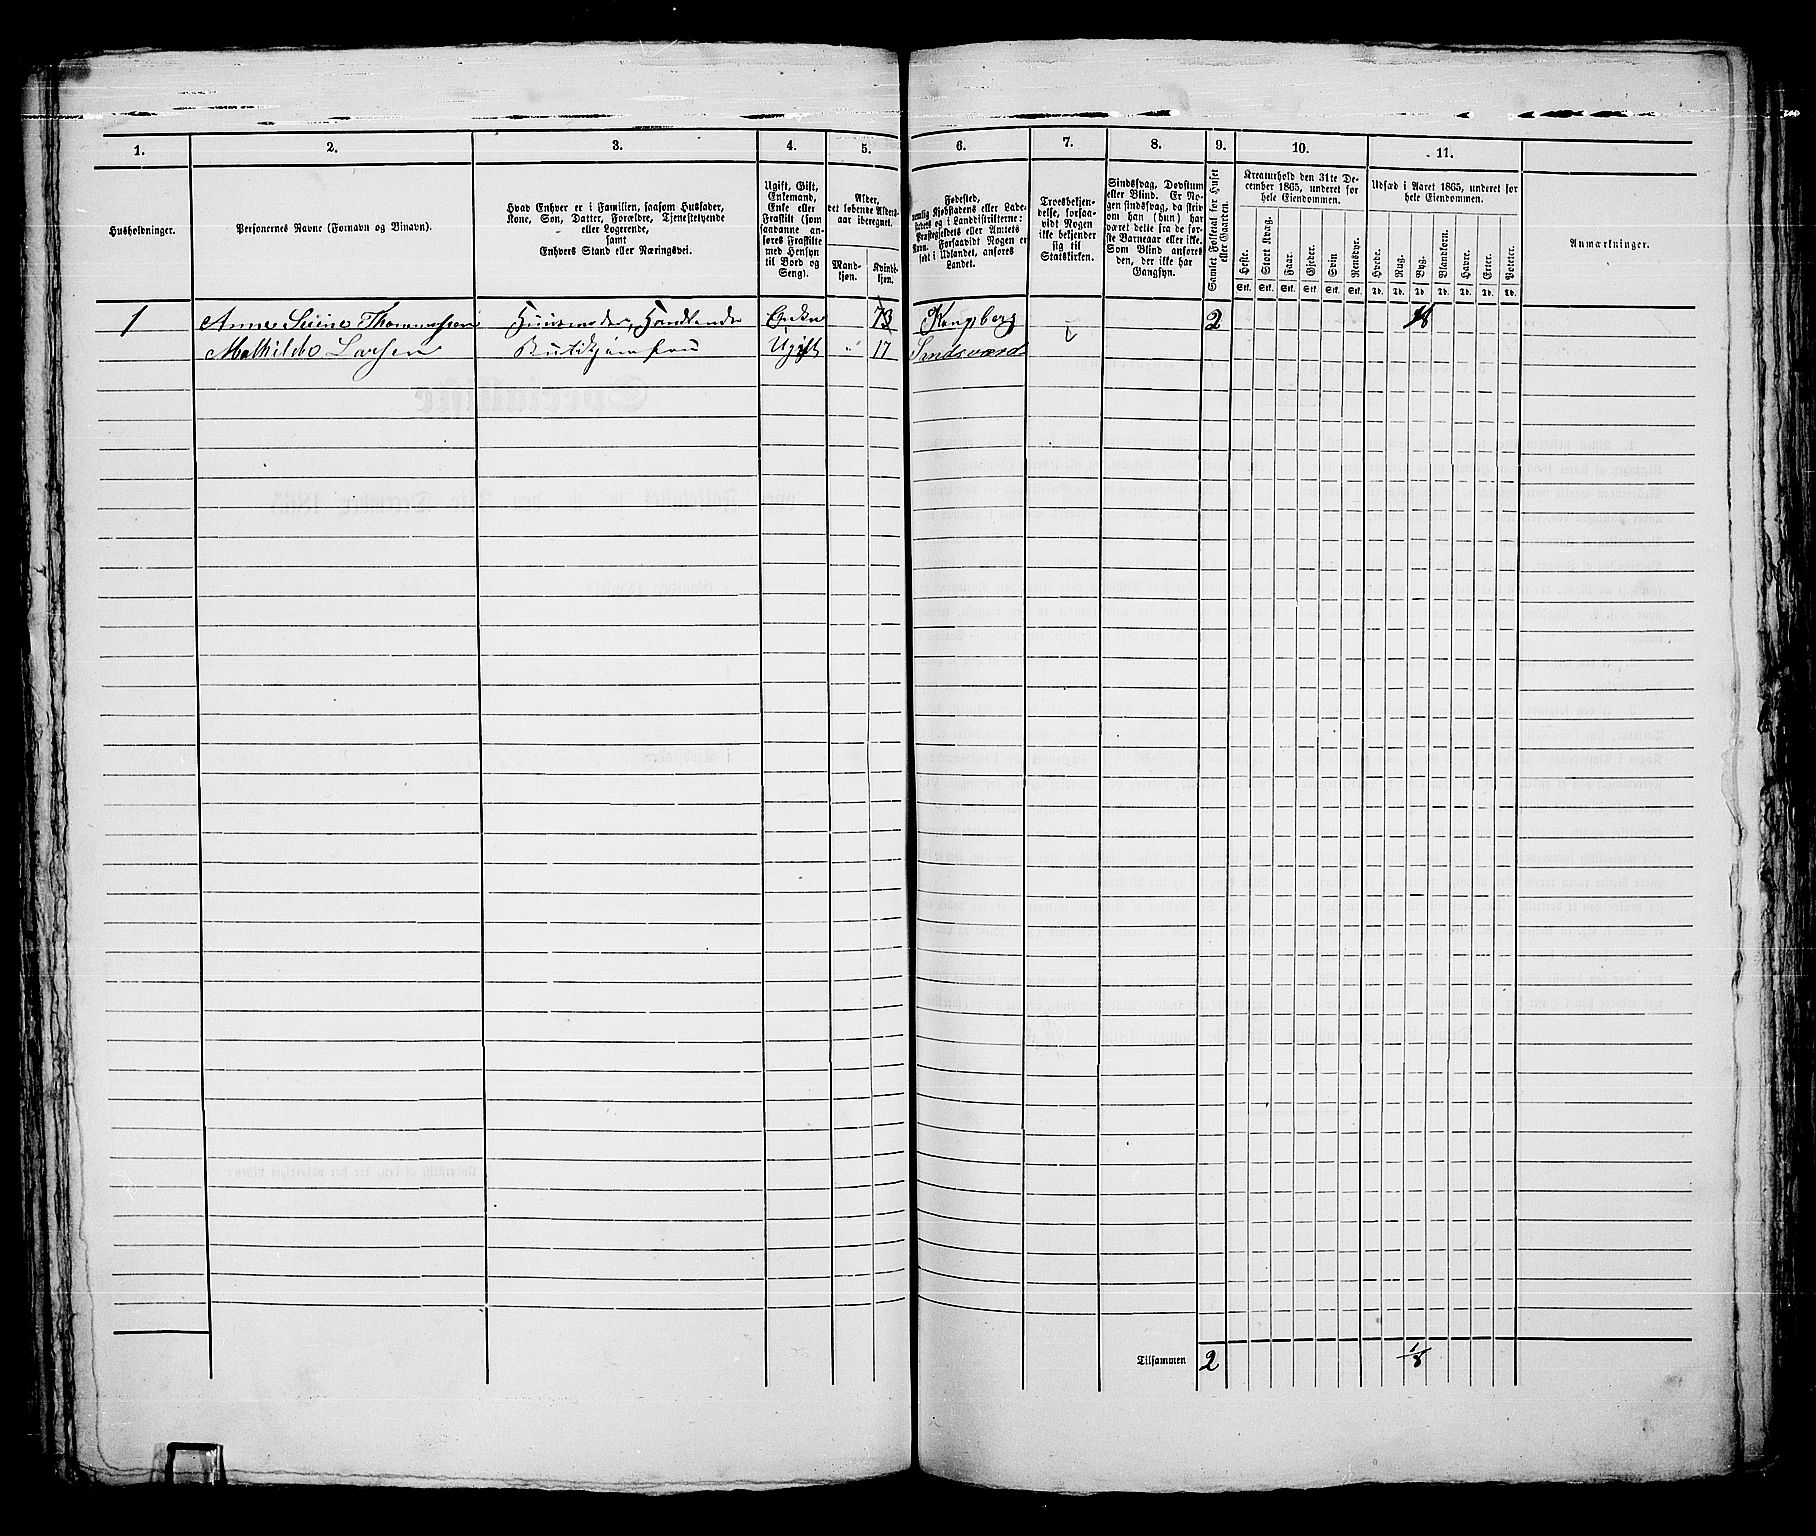 1.
2.
3.
4.
5.
6.
7.
8.
9.
10.
11.
Husholdninger.
Personernes Navne (Fornavn og Binavn).
Hvad Enhver er i Familien, saasom Husfader,
Kone, Søn, Datter, Forældre, Tjenestetyende
eller Logerende,
samt
Enhvers Stand eller Næringsvei.
Ugift, Gift,
Enkemand,
Enke eller
Fraskilt (som
saadanne an-
føres Fraskilte
med Hensyn
til Bord og
Seng).
Alder,
det løbende Alders-
aar iberegnet.
Mand-
kjøn.
Kvinde-
kjøn.
Fødested,
nemlig Kjøbstadens eller Lade-
stedets og i Landdistrikterne:
Præstegjeldets eller Amtets
Navn. Forsaavidt Nogen er
født i Udlandet, anføres
Landet.
Troesbekjen-
delse, forsaa-
vidt Nogen
ikke bekjender
sig til
Statskirken.
Sindssvag, Døvstum
eller Blind. Er No-
gen sindssvag, da skriv
om han (hun) har
været dette fra de før-
ste Barneaar eller ikke.
Som Blind anføres
den, der ikke har
Gangsyn.
Samlet Folketal for Huset
eller Gaarden.
Kreaturhold den 31te De-
cember 1865, underet for
hele Eiendommen.
Heste.
Stort Kvæg.
Faar.
Gjeder.
Svin
Rensdyr.
Stk. Stk. Stk. Stk. Stk. Stk.
Udsæd i Aaret 1865, underet for
hele Eiendommen.
Hvede.
Rug.
Byg.
Blandkorn.
Havre.
Erter.
Poteter.
Td. Td. Td. Td. Td. Td. Td.
Anmærkninger.
1 Anne Thommessen Huusmoder, Handlende Enke 73 Kongsberg 2
Mathilde Larsen Butikjomfru Ugift " 17 Sandsværd
Tilsammen 2 1/8